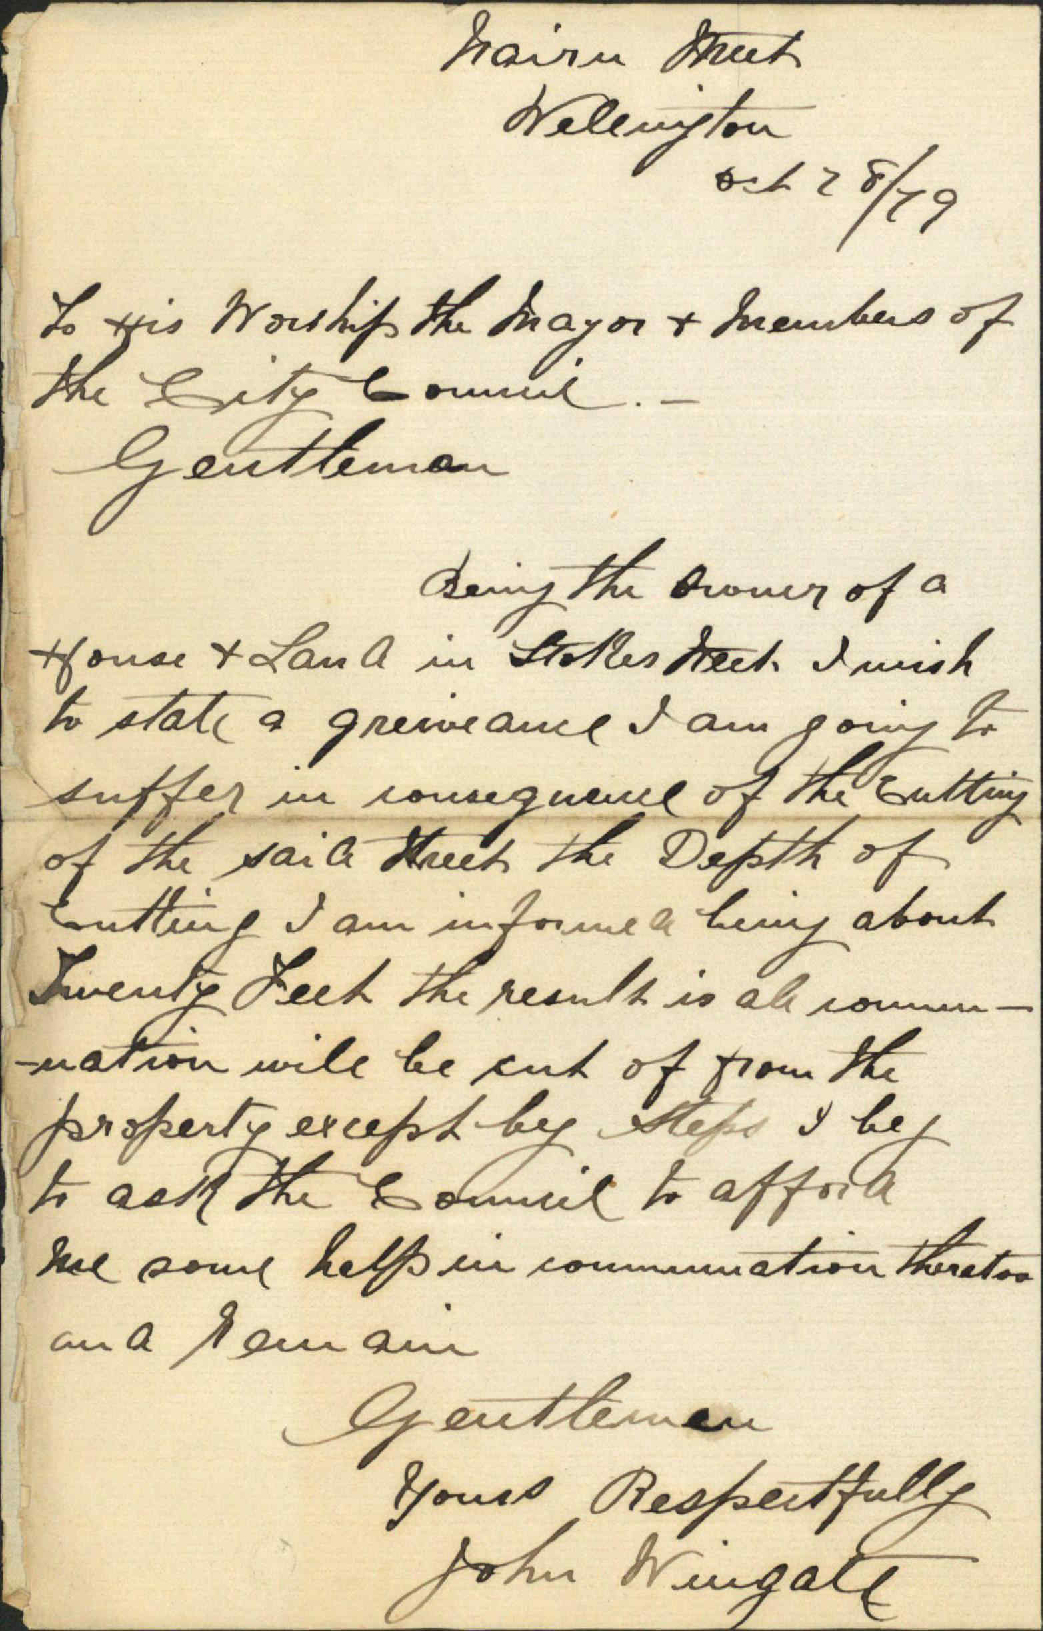 Nairn Street
Wellington
Oct 28/79
To His Worship the Mayor + Members of
the City Council. -
Gentleman
Being the owner of a
House + Land in Stokes Street I wish
to state a greiveance I am going to
suffer in consequence of the Cutting
of the said Street the Depth of
Cutting I am informed being about
Twenty Feet the result is all commu-
-nation will be cut of from the
property except by steps I beg
to ask the Council to afford
me some help in communation theretoo
and Remain
Gentlemen
Yours Respectfully
John Wingate